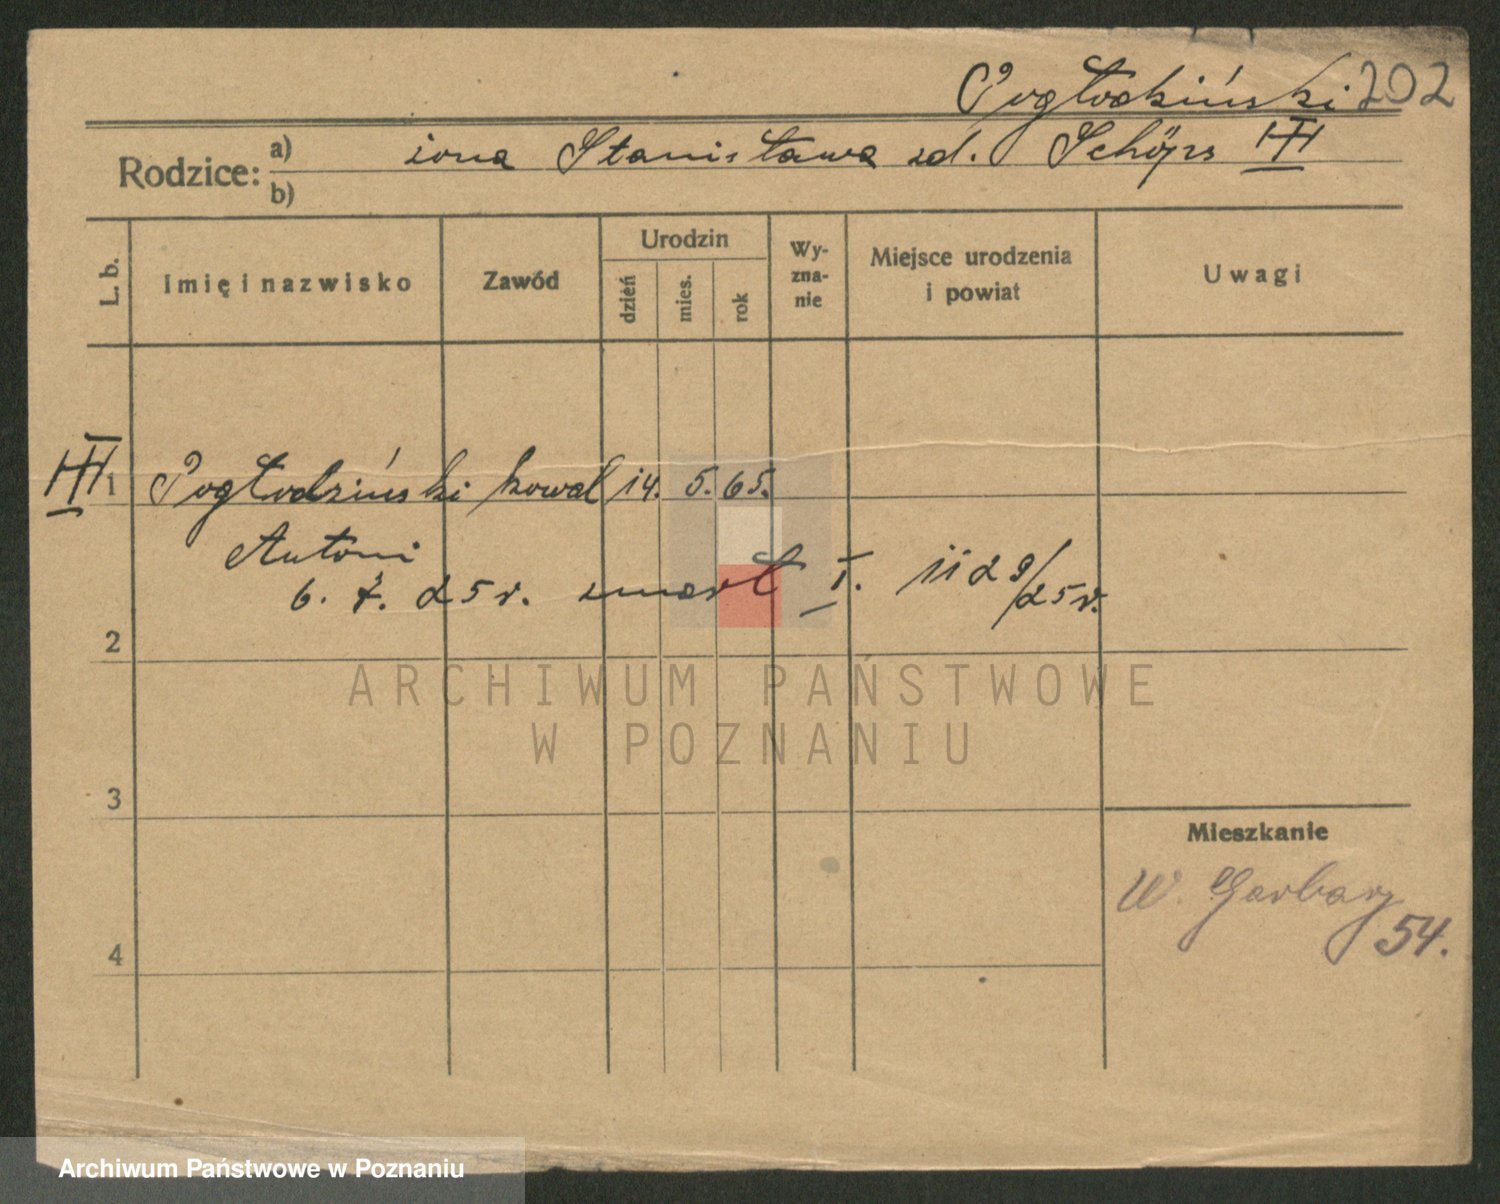 Pogłodziński 202
Rodzice: a) żona Stanisława zd. Schöps III
b)
L. b.
Imię i nazwisko
Zawód
Urodzin
dzień
mies.
rok
Wy-
zna-
nie
Miejsce urodzenia
i powiat
Uwagi
III 1 Pogłodziński kowal 14. 5. 65.
Antoni
6. 7. 25 r. zmarł I. 1129/25 r.
2
ARCHIWUM PAŃSTWOWE
W POZNANIU
3
Mieszkanie
W. Garbary
54.
4
Archiwum Państwowe w Poznaniu